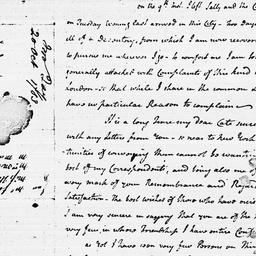 on the 9th Inst. I left Sally and the C
on Tuesday Evening last arrived in this City - Two Days
ill of a Dysentery, from which I am now recover
to pursue me wherever I go - to comfort me I am to
generally attacked with Complaints of this kind
London - & that while I share in the common
have no particular Reason to complain
It is a long Time my dear Cate since
with any Letters from You - so near to New York
tunities of conveying them cannot be wanti
best of my Correspondents, and being also one of
every mark of your Remembrance and Regard
Satisfaction. The best wishes of those who have
I am very sincere in saying that you are of the N
very few, in whose Friendship I have entire Conf
as yet I have seen very few Persons on this
20 Oct. 1783